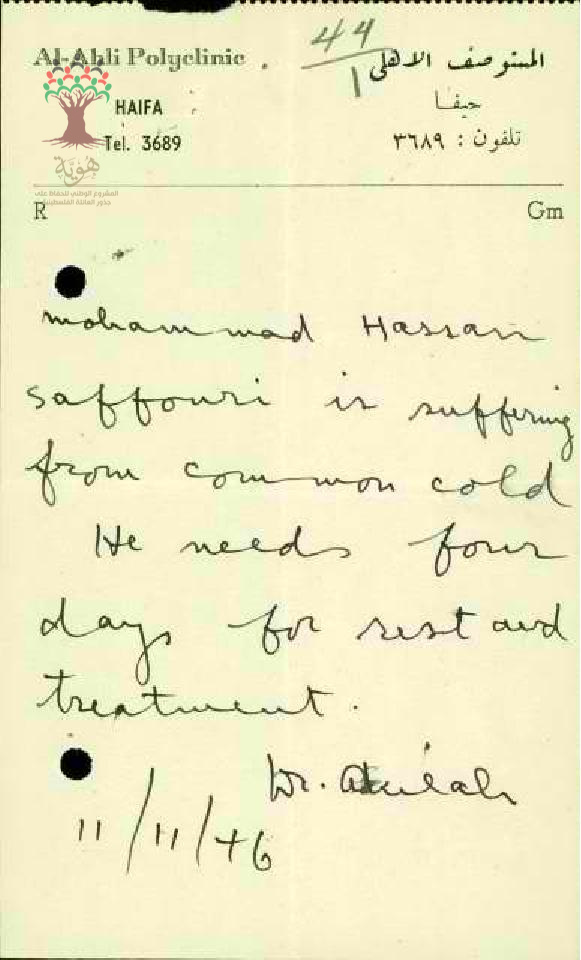 Al-Ahli Polyclinic
HAIFA
Tel. 3689
44
1
المستوصف الاهلي
حيفا
تلفون : ٣٦٨٩
هُويّة
المشروع الوطني للحفاظ على
جذور العائلة الفلسطينية
R
Gm
mohammad Hassan
saffouri is suffering
from common cold
He needs four
days for rest and
treatment.
Dr.
11/11/46